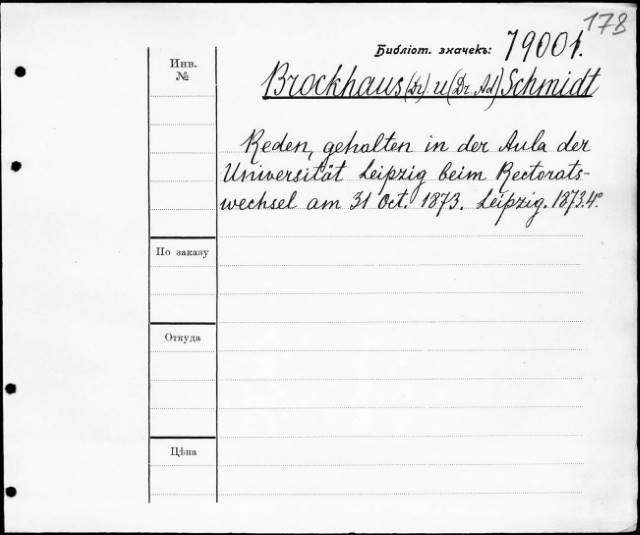 178
Библіот. значекъ: 79001.
Инв. №
Brockhaus (Dr.) u (Dr. Ad.) Schmidt
Reden, gehalten in der Aula der
Universität Leipzig beim Rectorats-
wechsel am 31 Oct. 1873. Leipzig. 1873. 4°
По заказу
Откуда
Цѣна